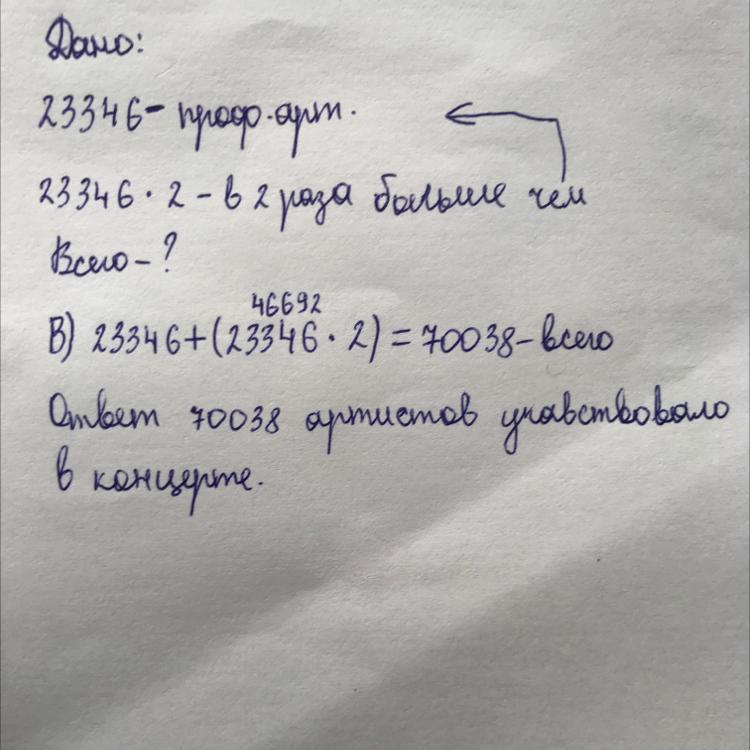 Дано:
23346- проф.арт.
23346 · 2 - в 2 раза больше чем
Всего - ?
46692
В) 23346+(23346 · 2) = 70038-всего
Ответ 70038 артистов учавствовало
в концерте.